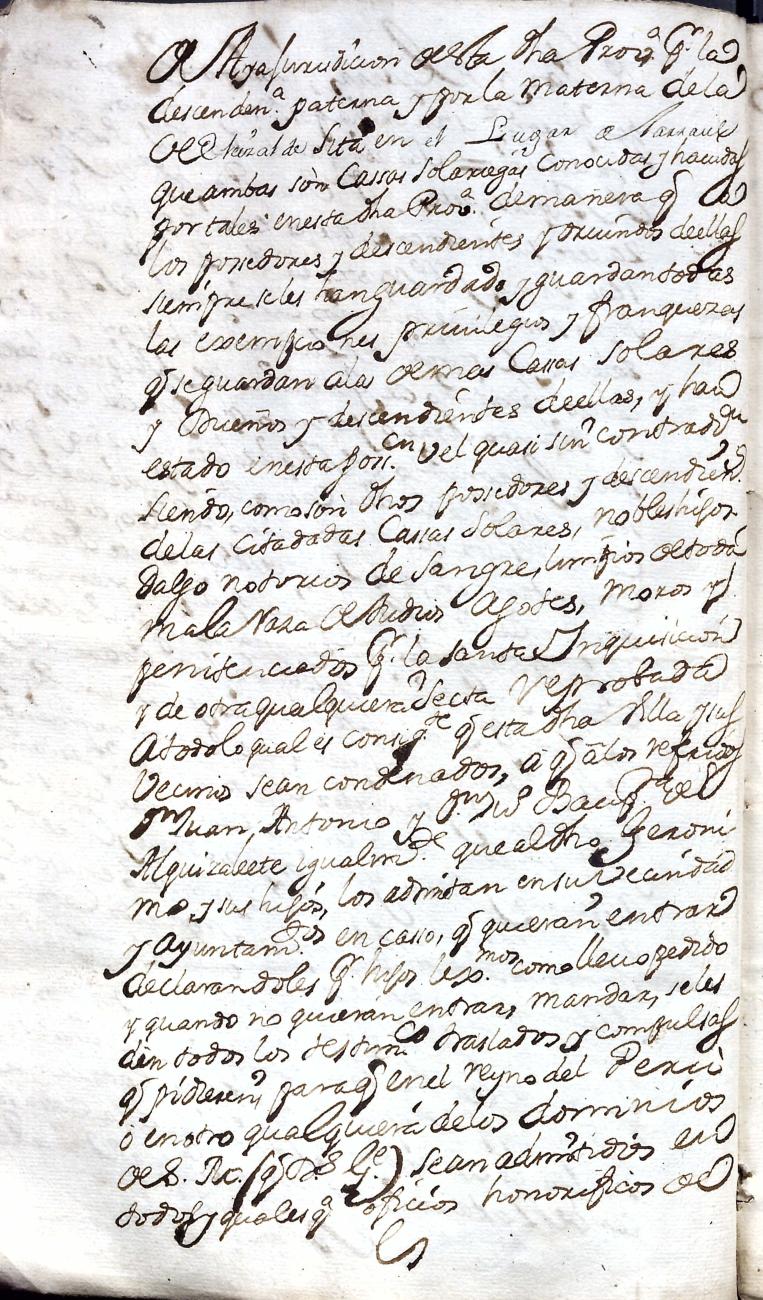 de otra jurisdicion de esta dha Prov.ª q.e la
descenden.ª paterna y por la materna dela
de Elizalde sita en el Lugar de
que ambas són Cassas solariegas conocidas y hauidas
por tales enesta dha Prov.ª demanera q.e a
los possedores y descendientes y oriundos deellas
siempre seles han guardado y guardan todas
las exempciones priuilegios y franquezas
q.e se guardan alas demas Cassas solares
y Dueños y descendientes deellas, y han
estado enesta poss.on vel quasi sin contradi.on
siendo, como són dhos possedores y descendien.s
delas citadadas Cassas Solares, nobles hijos
dalgo notorios de sangre, limpios de toda
mala Raza de Judios Agotes, Moros y
penitenciados p.r la santa Inquisicion
y de otra qualquiera Secta reprobada
Atodo lo qual és consig.te q.e esta dha Villa y sus
Vecinos sean condenados, á q.e álos referidos
Juan, Antonio y
Alquizalete igualm.te que al dho Geroni
mo, y sus hijos, los admitan en su Vecindad
y Ayuntam.tos en casso, q.e quieran entrar
declarandoles p.r hijos lex.mos como lleuo pedido
y quando no quieran entrar, mandar, seles
dén todos los testim.os traslados y compulsas
q.e pidieren, para q.e enel reyno del Perù
ó en otro qualquiera delos dominios
de S. R. (q. D.s G.e) sean admitidos en
todos y qualesq.a oficios honorificos de